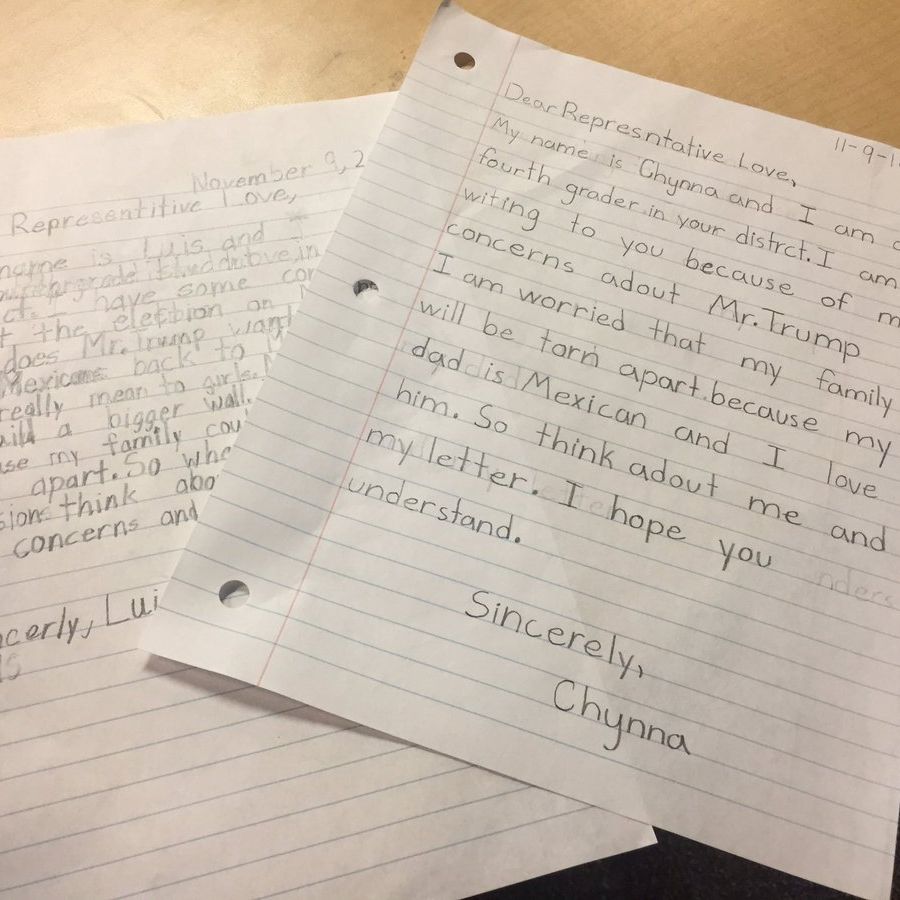 November 9, 2
Representitive Love,
name is Luis and I
have some con
t the election on
does Mr. Trump want
Mexicans back to M
really mean to girls.
uild a bigger wall.
use my family cou
apart. So whe
sions think abo
concerns and
ncerly, Lui
11-9-1
Dear Represntative Love,
My name is Chynna and I am a
fourth grader in your distrct. I am
witing to you because of m
concerns adout Mr. Trump
I am worried that my family
will be torn apart because my
dad is Mexican and I love
him. So think adout me and
my letter. I hope you
understand.
Sincerely,
Chynna